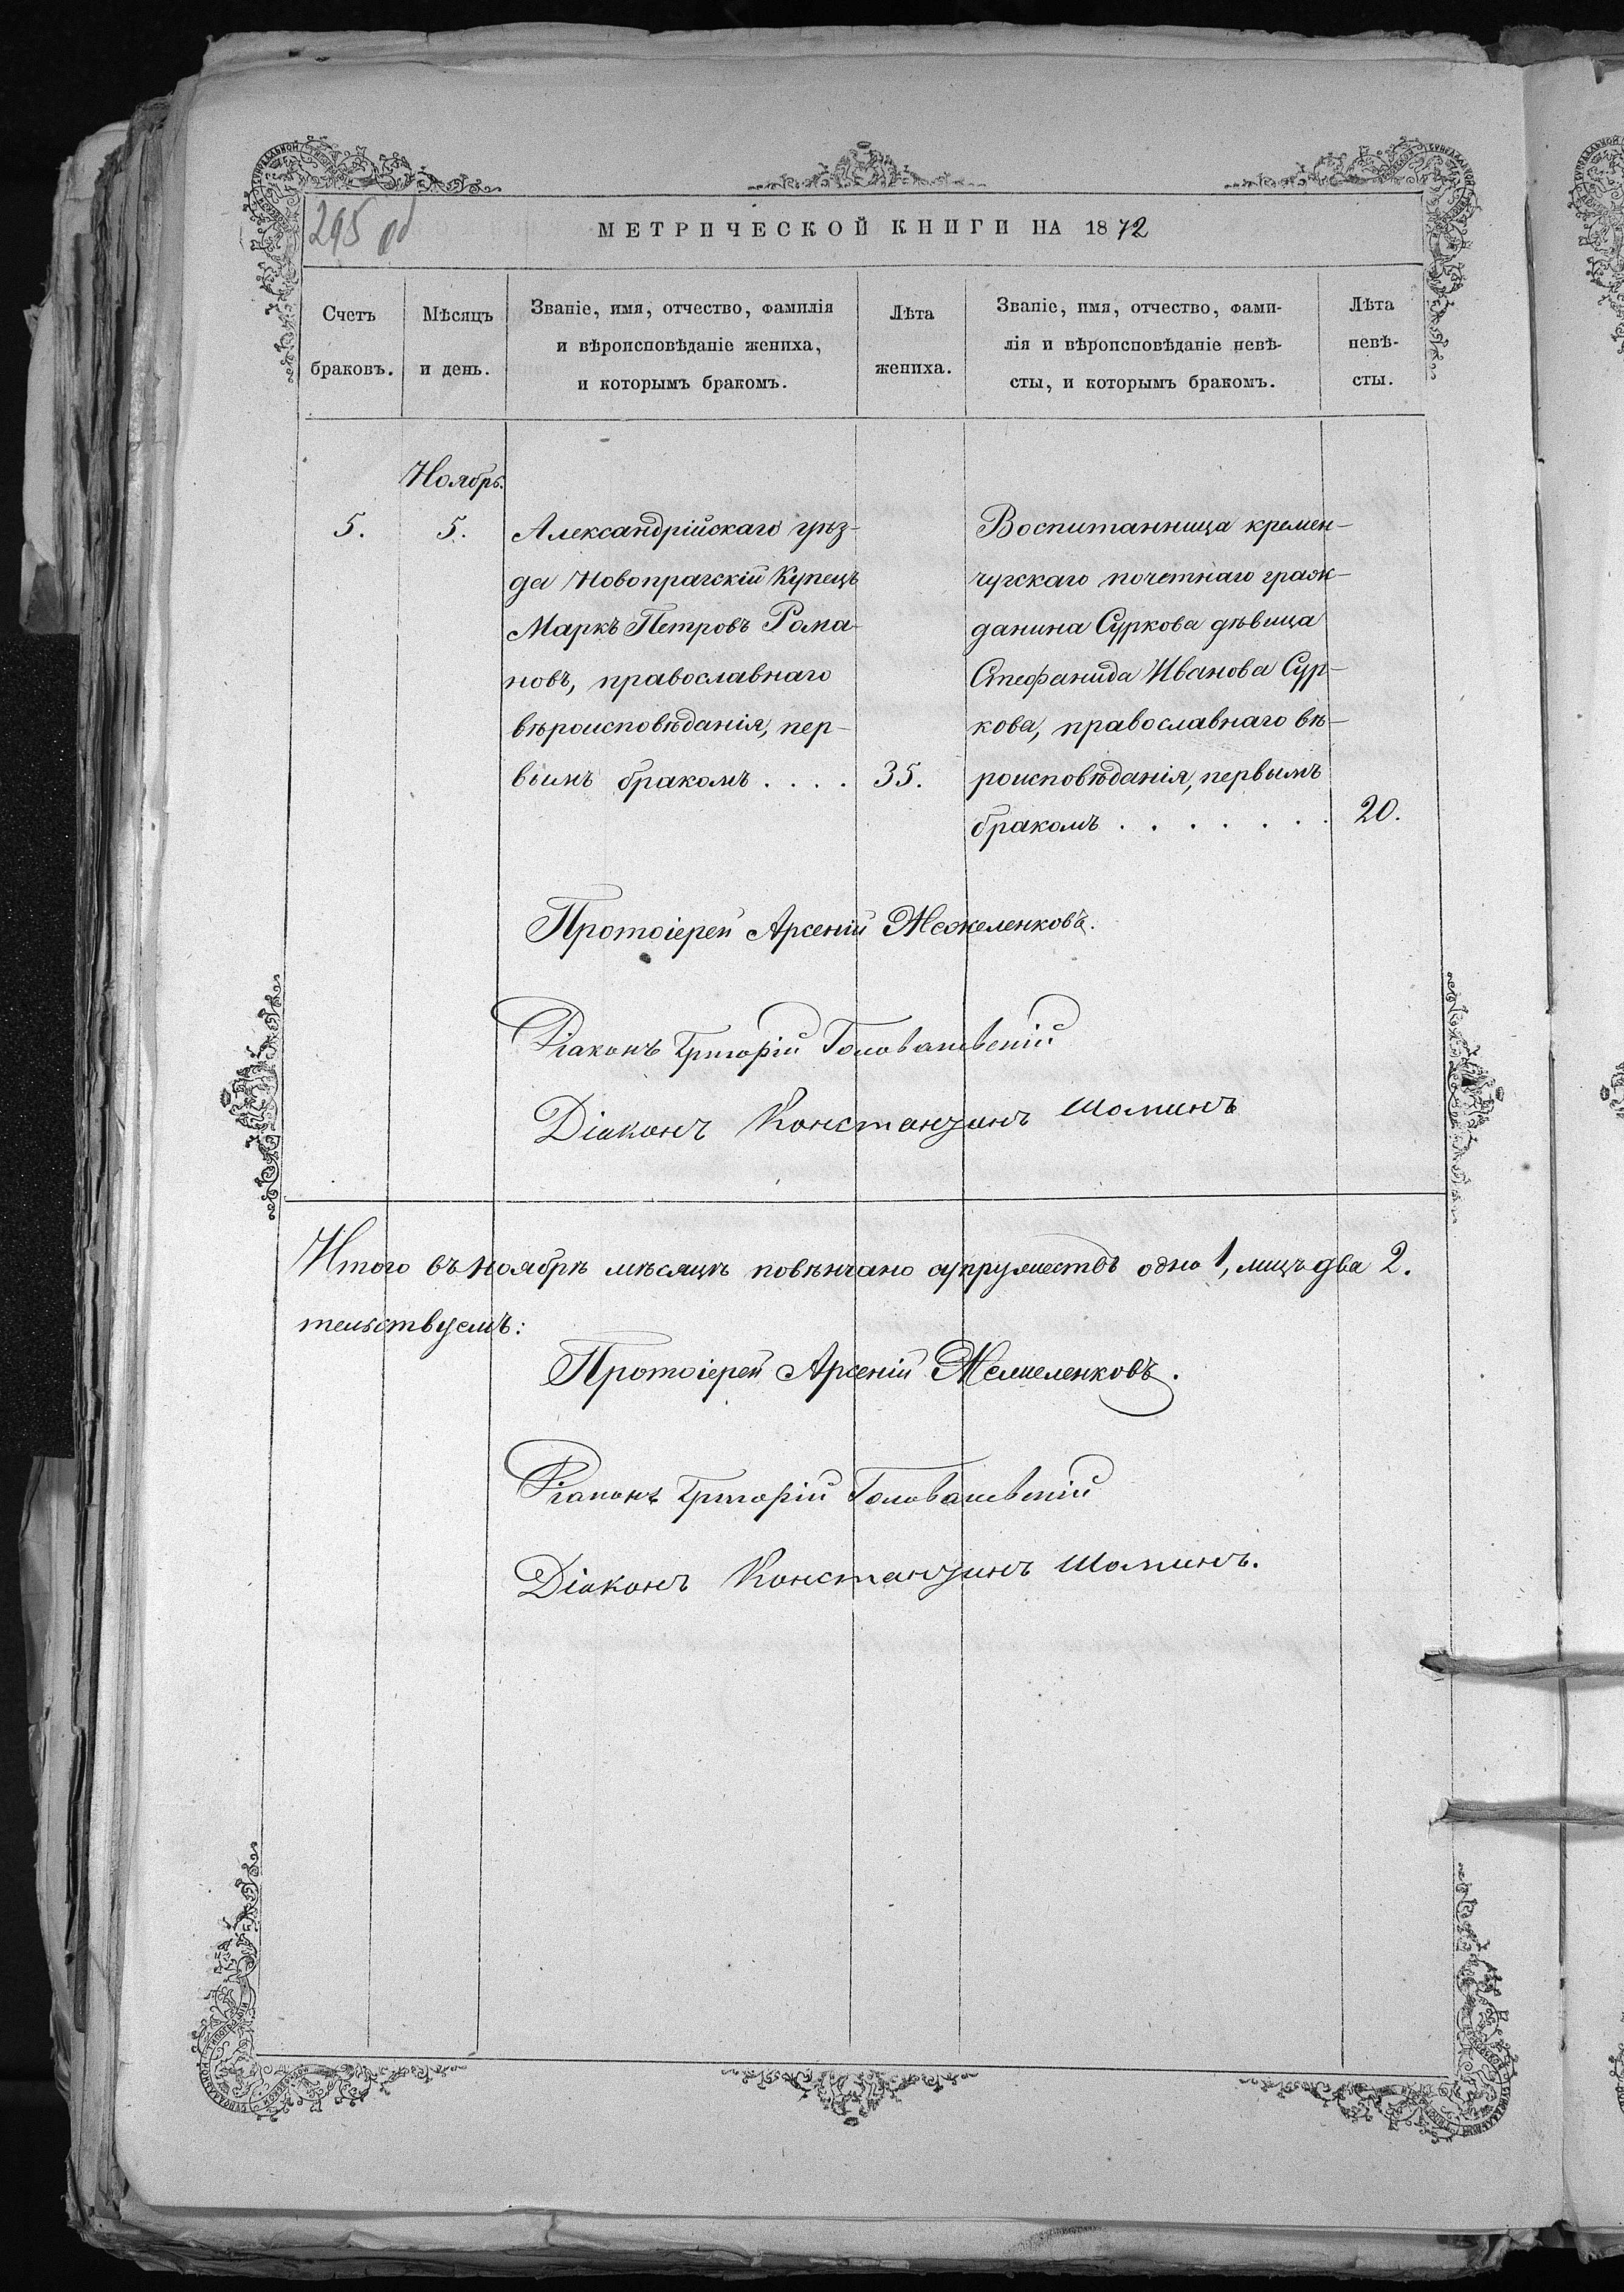 295 об
МЕТРИЧЕСКОЙ КНИГИ НА 1872
Счетъ браковъ.
Мѣсяцъ и день.
Званіе, имя, отчество, фамилія
и вѣроисповѣданіе жениха,
и которымъ бракомъ.
Лѣта жениха.
Званіе, имя, отчество, фами-
лія и вѣроисповѣданіе невѣ-
сты, и которымъ бракомъ.
Лѣта невѣ-
сты.
Ноябрь.
5.
5.
Александрійскаго уѣз-
да Новопрагскій Купецъ
Маркъ Петровъ Рома-
новъ, православнаго
вѣроисповѣданія, пер-
вымъ бракомъ . . . .
35.
Воспитанница кремен-
чугскаго почетнаго граж-
данина Суркова дѣвица
Стефанида Иванова Сур-
кова, православнаго вѣ-
роисповѣданія, первымъ
бракомъ . . . . . . .
20.
Протоіерей Арсеній
Діаконъ Григорій
Діаконъ Константинъ Шоминъ
Итого въ ноябрѣ мѣсяцѣ повѣнчано супружествъ одно 1, лицъ два 2.
тельствуемъ:
Протоіерей Арсеній
Діаконъ Григорій
Діаконъ Константинъ Шоминъ.